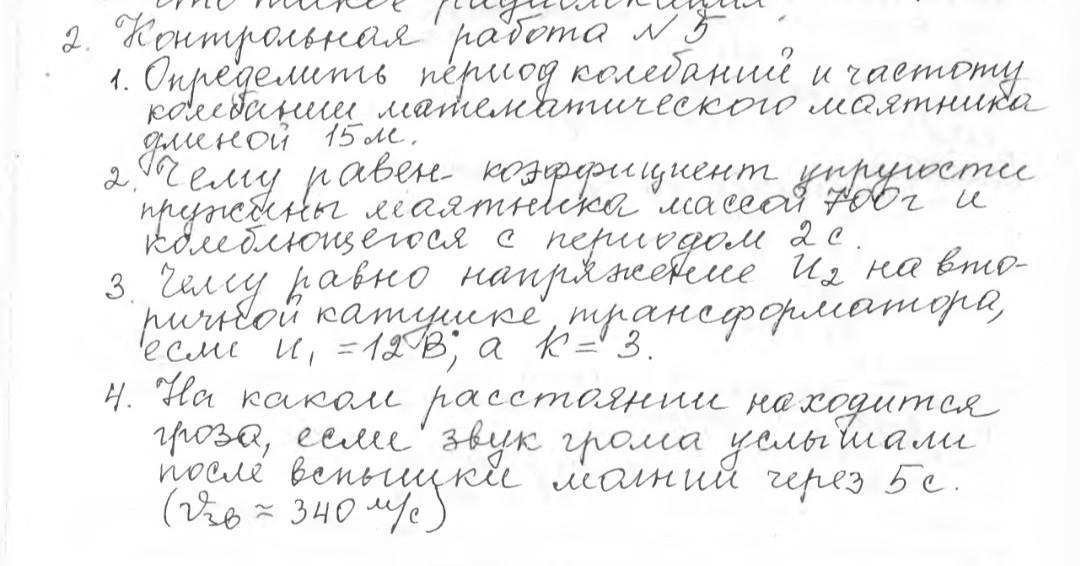 что такое радиолокация.
2. Контрольная работа № 5
1. Определить период колебаний и частоту
колебании математического маятника
длиной 15 м.
2. Чему равен коэффициент упругости
пружины маятника массой 700 г и
колеблющегося с периодом 2 с.
3. Чему равно напряжение U₂ на вто-
ричной катушке трансформатора,
если U₁ = 12 В, а K = 3.
4. На каком расстоянии находится
гроза, если звук грома услышали
после вспышки молнии через 5 с.
(Vзв ≈ 340 м/с)